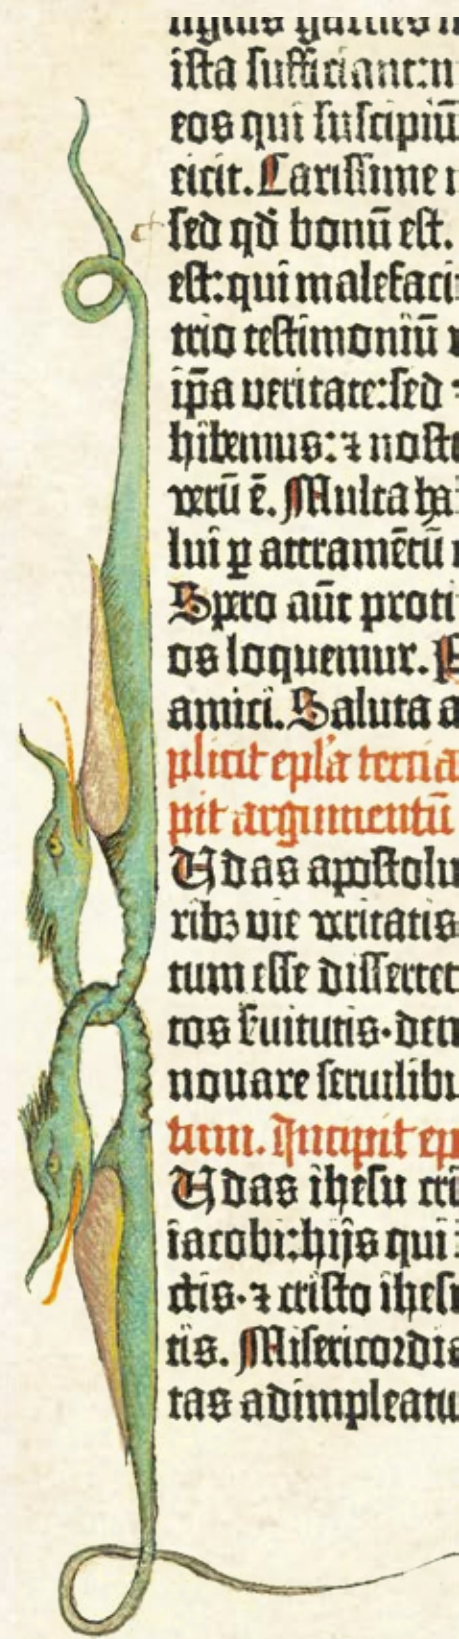 ista sufficiant: n
eos qui suscipiũ
eicit. Carissime n
sed qd̃ bonũ est.
est: qui malefaci
trio testimoniũ
ip̃a veritate: sed ⁊
hibemus: ⁊ nosto
verũ ẽ. Multa ha
lui ꝑ attramẽtũ
Spero aũt proti
os loquemur. P
amici. Saluta a
plicit epl'a tercia
pit argumentũ
Udas apostolu
ribꝫ vie veritatis
tum esse disserret
tos ẜuitutis. den
novare servilibu
tum. Incipit ep
Udas ihesu cri
iacobi: hijs qui
ctis. ⁊ cristo ihesu
tis. Misericordia
tas adimpleatu